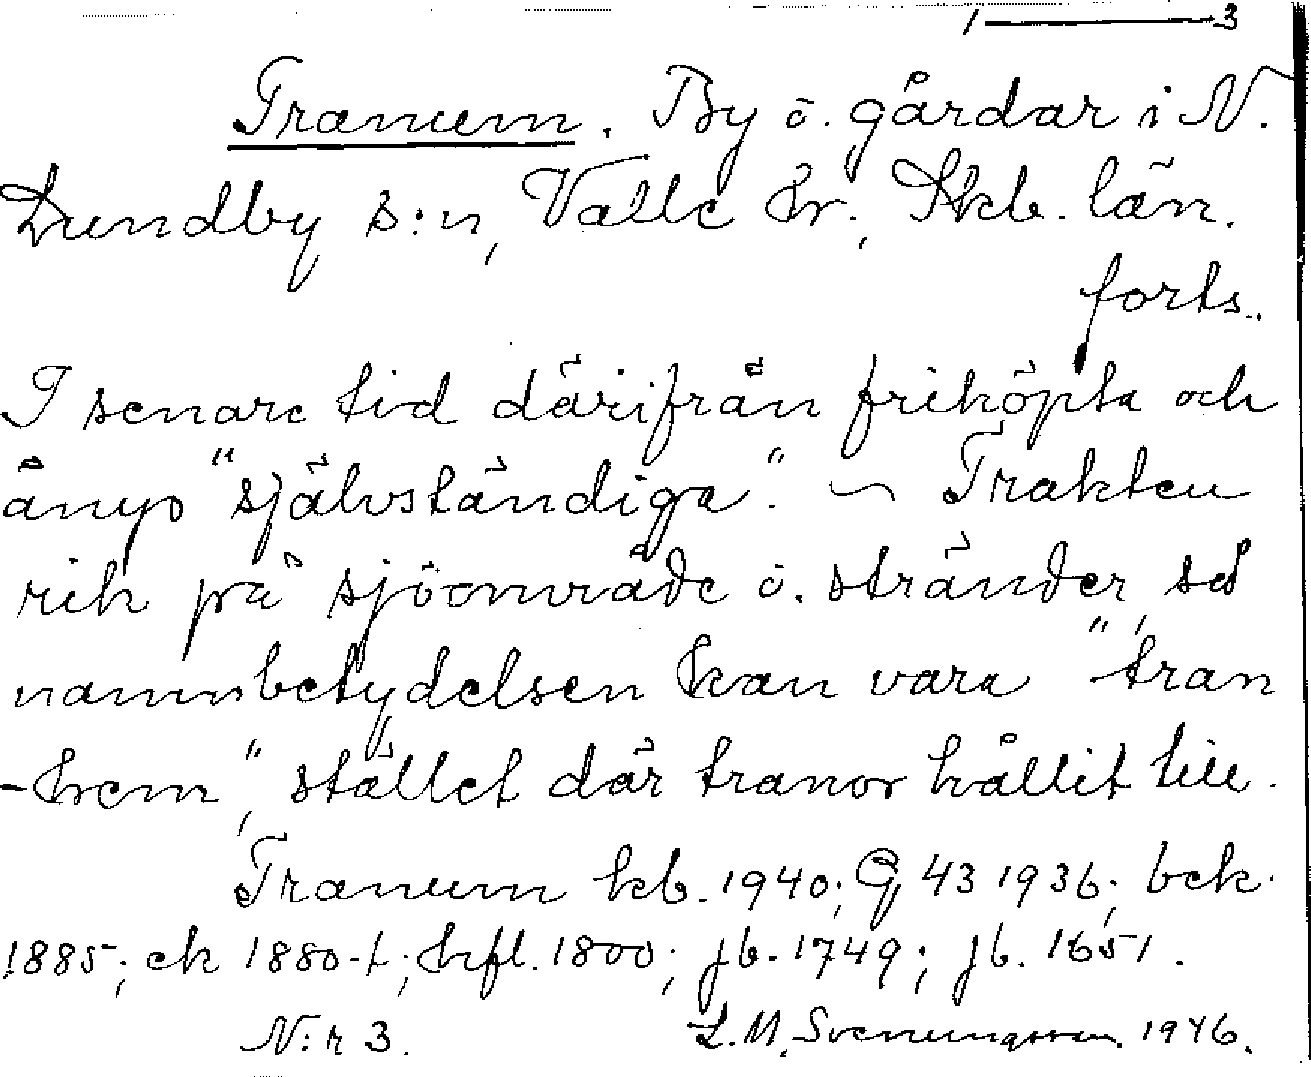 1 — 3
Tranum. By o. gårdar i N.
Lundby s:n, Valle hr., Skb. län.
forts.
I senare tid därifrån friköpta och
ånyo "självständiga". – Trakten
rik på sjöområde o. stränder, så
namnbetydelsen kan vara "tran
-hem", stället där tranor hållit till.
Tranum kb. 1940; G 43 1936; bek.
1885; ek 1880-t; hfl. 1800; jb. 1749; jb. 1651.
N:r 3. L.M. Svenungsson. 1946.